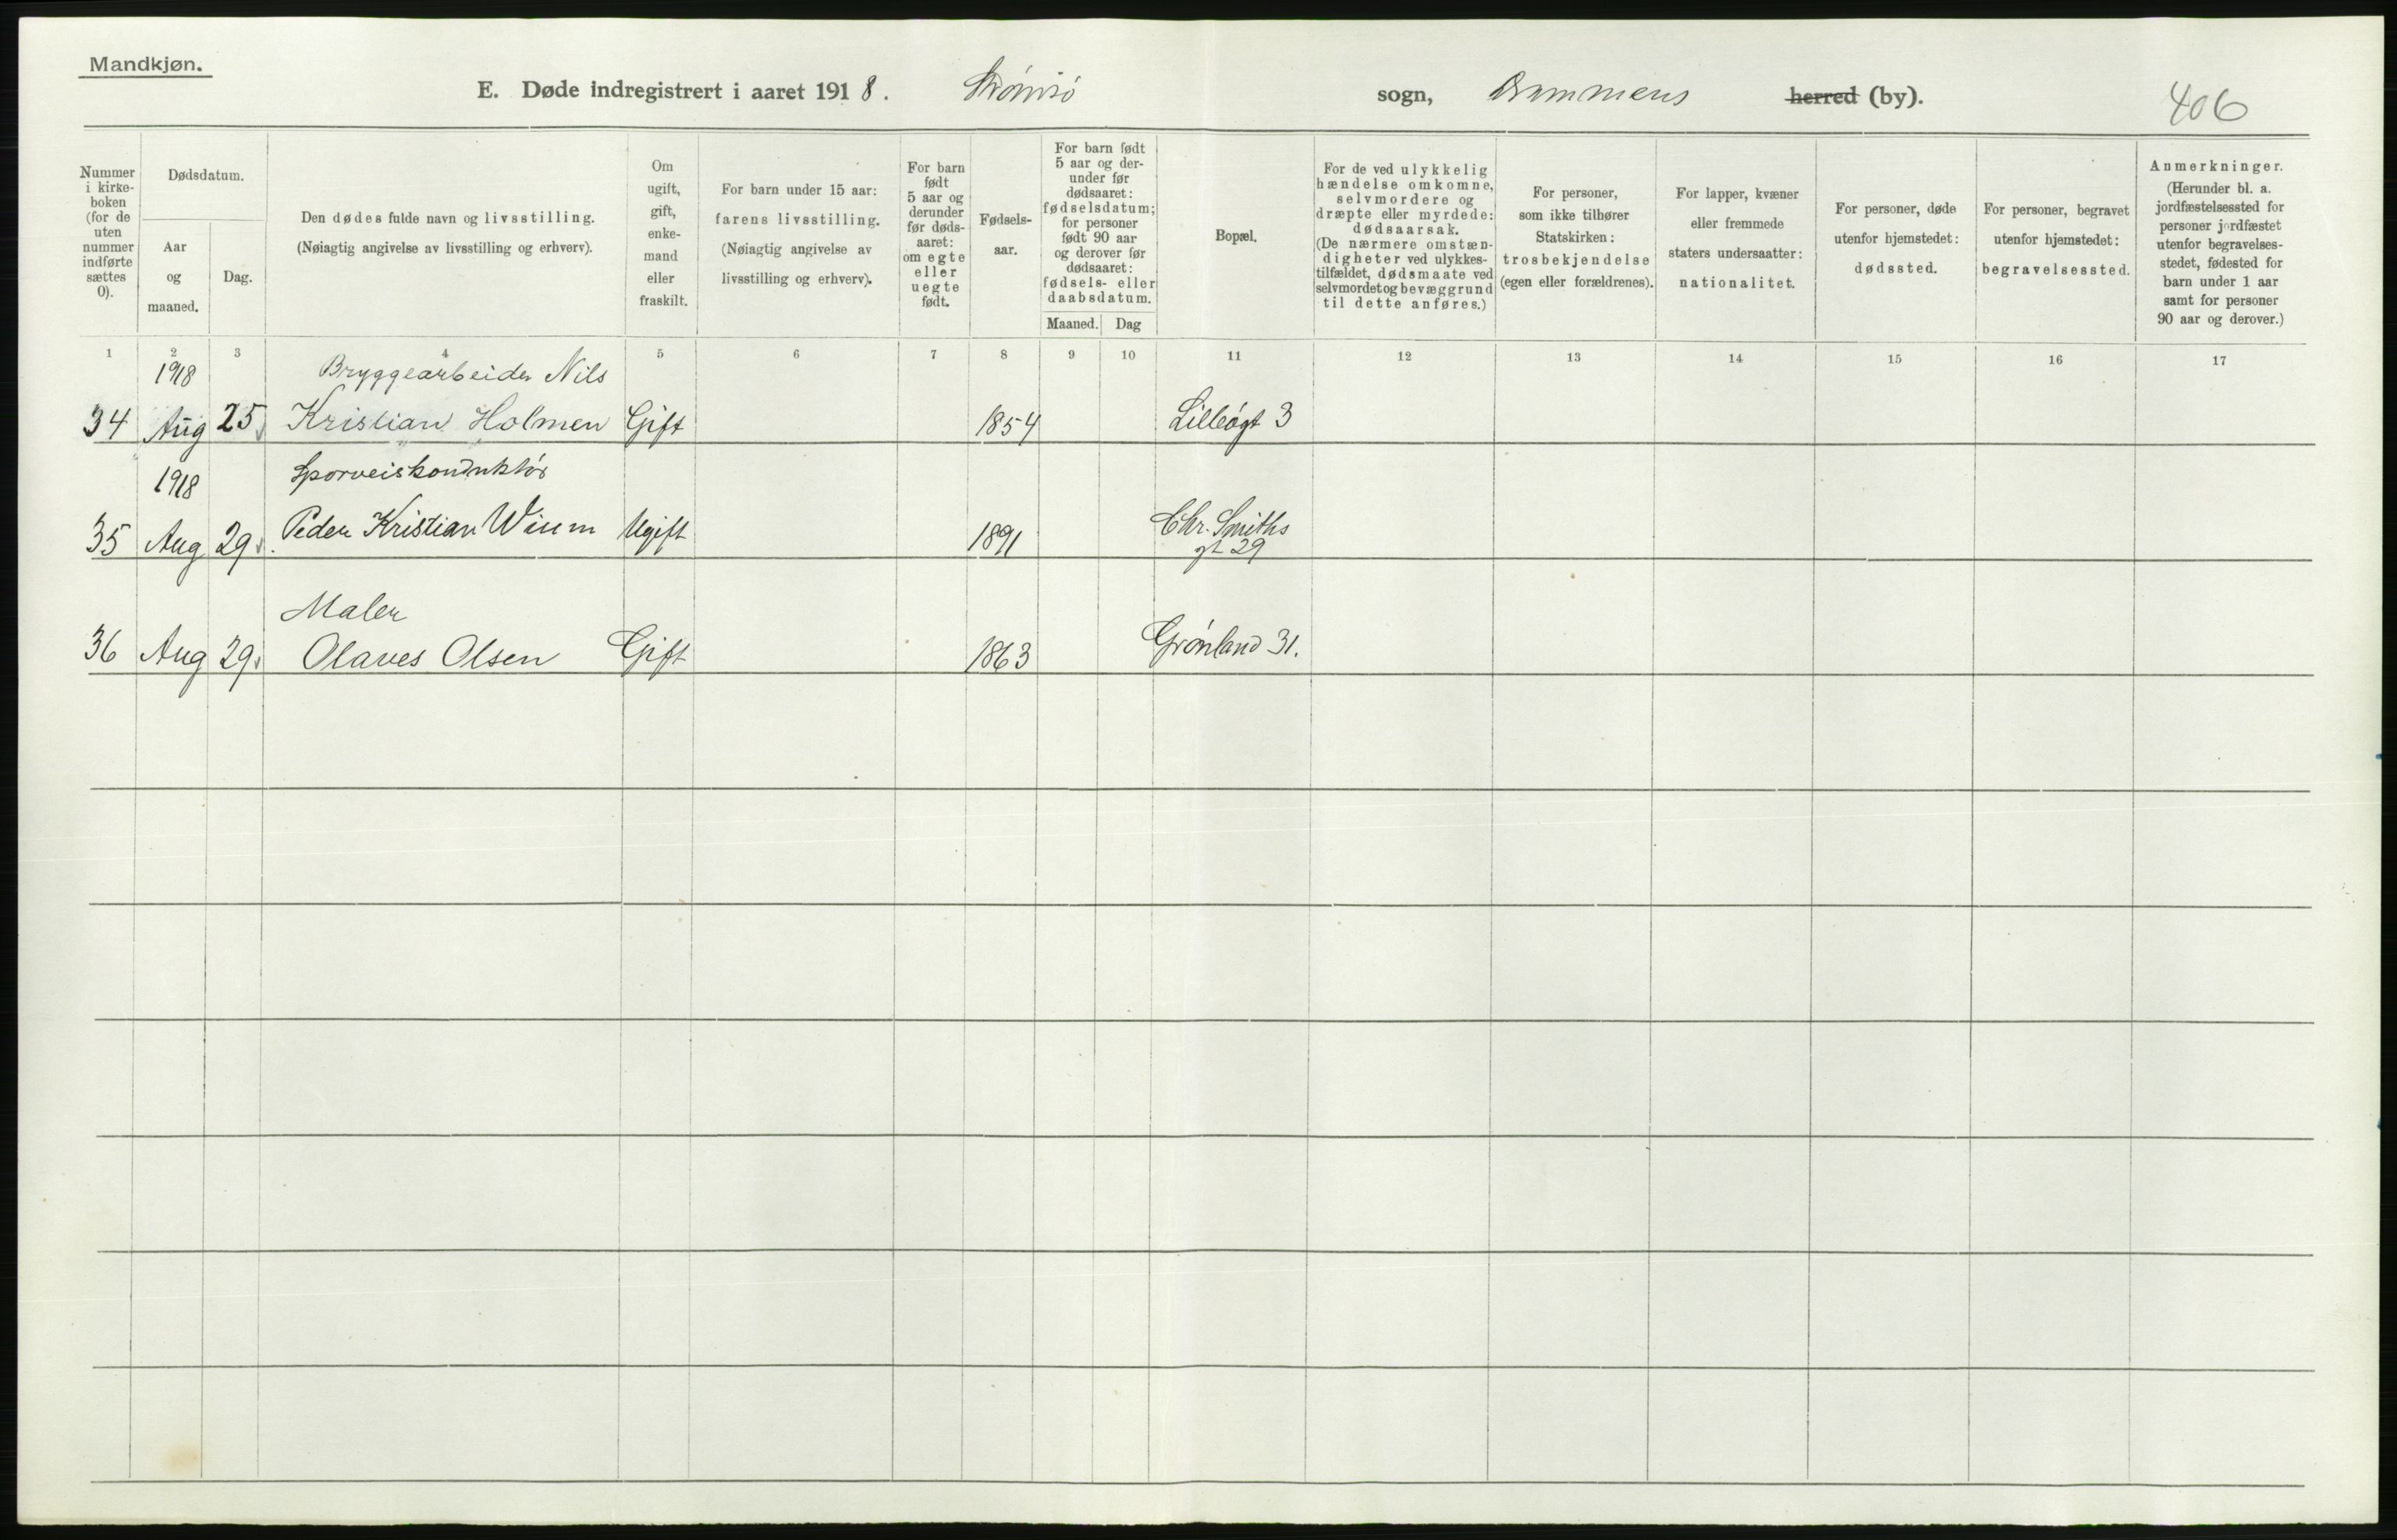 Mandkjøn.
E. Døde indregistrert i aaret 1918. Strømsö sogn, Drammens herred (by). 406
Nummer i kirke- boken (for de uten nummer indførte sættes 0).
Dødsdatum.
Aar og maaned.
Dag.
Den dødes fulde navn og livsstilling.
(Nøiagtig angivelse av livsstilling og erhverv).
Om ugift, gift, enke- mand eller fraskilt.
For barn under 15 aar: farens livsstilling.
(Nøiagtig angivelse av livsstilling og erhverv).
For barn født 5 aar og derunder før døds- aaret: om egte eller uegte født.
Fødsels- aar.
For barn født 5 aar og der- under før dødsaaret: fødselsdatum; for personer født 90 aar og derover før dødsaaret: fødsels- eller daabsdatum.
Maaned. Dag
Bopæl.
For de ved ulykkelig hændelse omkomne, selvmordere og dræpte eller myrdede: dødsaarsak.
(De nærmere omstæn- digheter ved ulykkes- tilfældet, dødsmaate ved selvmordet og bevæggrund til dette anføres.)
For personer, som ikke tilhører Statskirken: trosbekjendelse (egen eller forældrenes).
For lapper, kvæner eller fremmede staters undersaatter: nationalitet.
For personer, døde utenfor hjemstedet: dødssted.
For personer, begravet utenfor hjemstedet: begravelsessted.
Anmerkninger.
(Herunder bl. a. jordfæstelsessted for personer jordfæstet utenfor begravelses- stedet, fødested for barn under 1 aar samt for personer 90 aar og derover.)
1 2 3 4 5 6 7 8 9 10 11 12 13 14 15 16 17
1918 Bryggearbeider Nils
34 Aug 25 Kristian Holmen Gift 1854 Lilleögt 3
1918 Sporveiskonduktör
35 Aug 29. Peder Kristian Wium Ugift 1891 Chr. Smiths
gt 29
Maler
36 Aug 29. Olaves Olsen Gift 1863 Grönland 31.